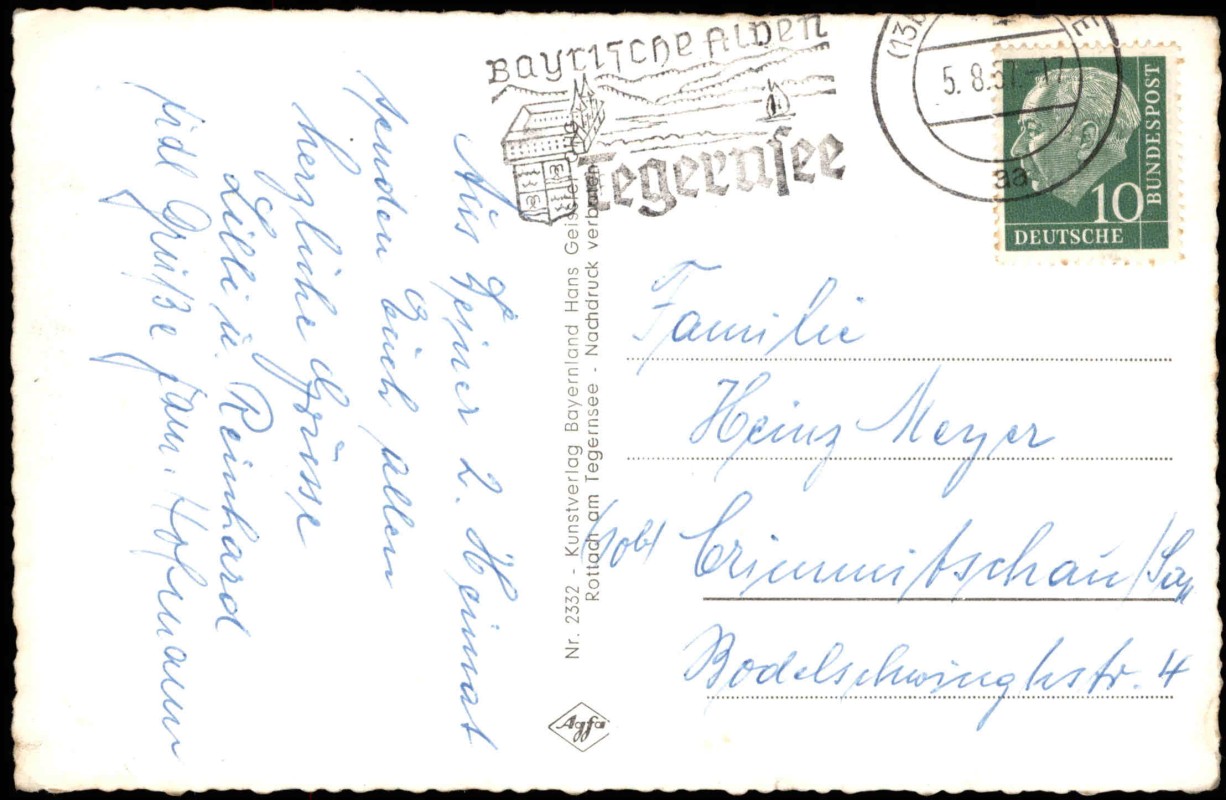 Aus Deiner 2. Heimat
senden Euch allen
herzliche Grüsse
Lilli u. Reinhard
Grüße fam. Hofmann
Nr. 2332 - Kunstverlag Bayernland Hans Geis
Rottach am Tegernsee - Nachdruck verboten
Agfa
Bayrische Alpen
Tegernsee
(13b
5. 8. 57.-17
aa
10
DEUTSCHE
BUNDESPOST
Familie
Heinz Meyer
Crimmitschau/Sa
Bodelschwinghstr. 4